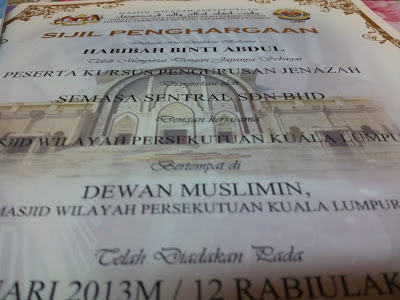 MASJID WILAYAH PERSEKUTUAN
SIJIL PENGHARGAAN
HABIBAH BINTI ABDUL
Telah Menyertai Dengan Jayanya Sebagai
PESERTA KURSUS PENGURUSAN JENAZAH
Anjuran oleh
SEMASA SENTRAL SDN BHD
Dengan kerjasama
SJID WILAYAH PERSEKUTUAN KUALA LUMPUR
Bertempat di
DEWAN MUSLIMIN,
MASJID WILAYAH PERSEKUTUAN KUALA LUMPUR
Telah Diadakan Pada
UARI 2013M / 12 RABIULAK